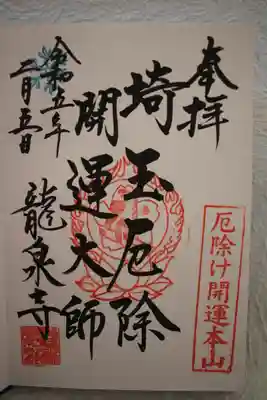 奉拝
厄除け開運本山
埼玉厄除
開運大師
令和五年
二月五日
龍泉寺